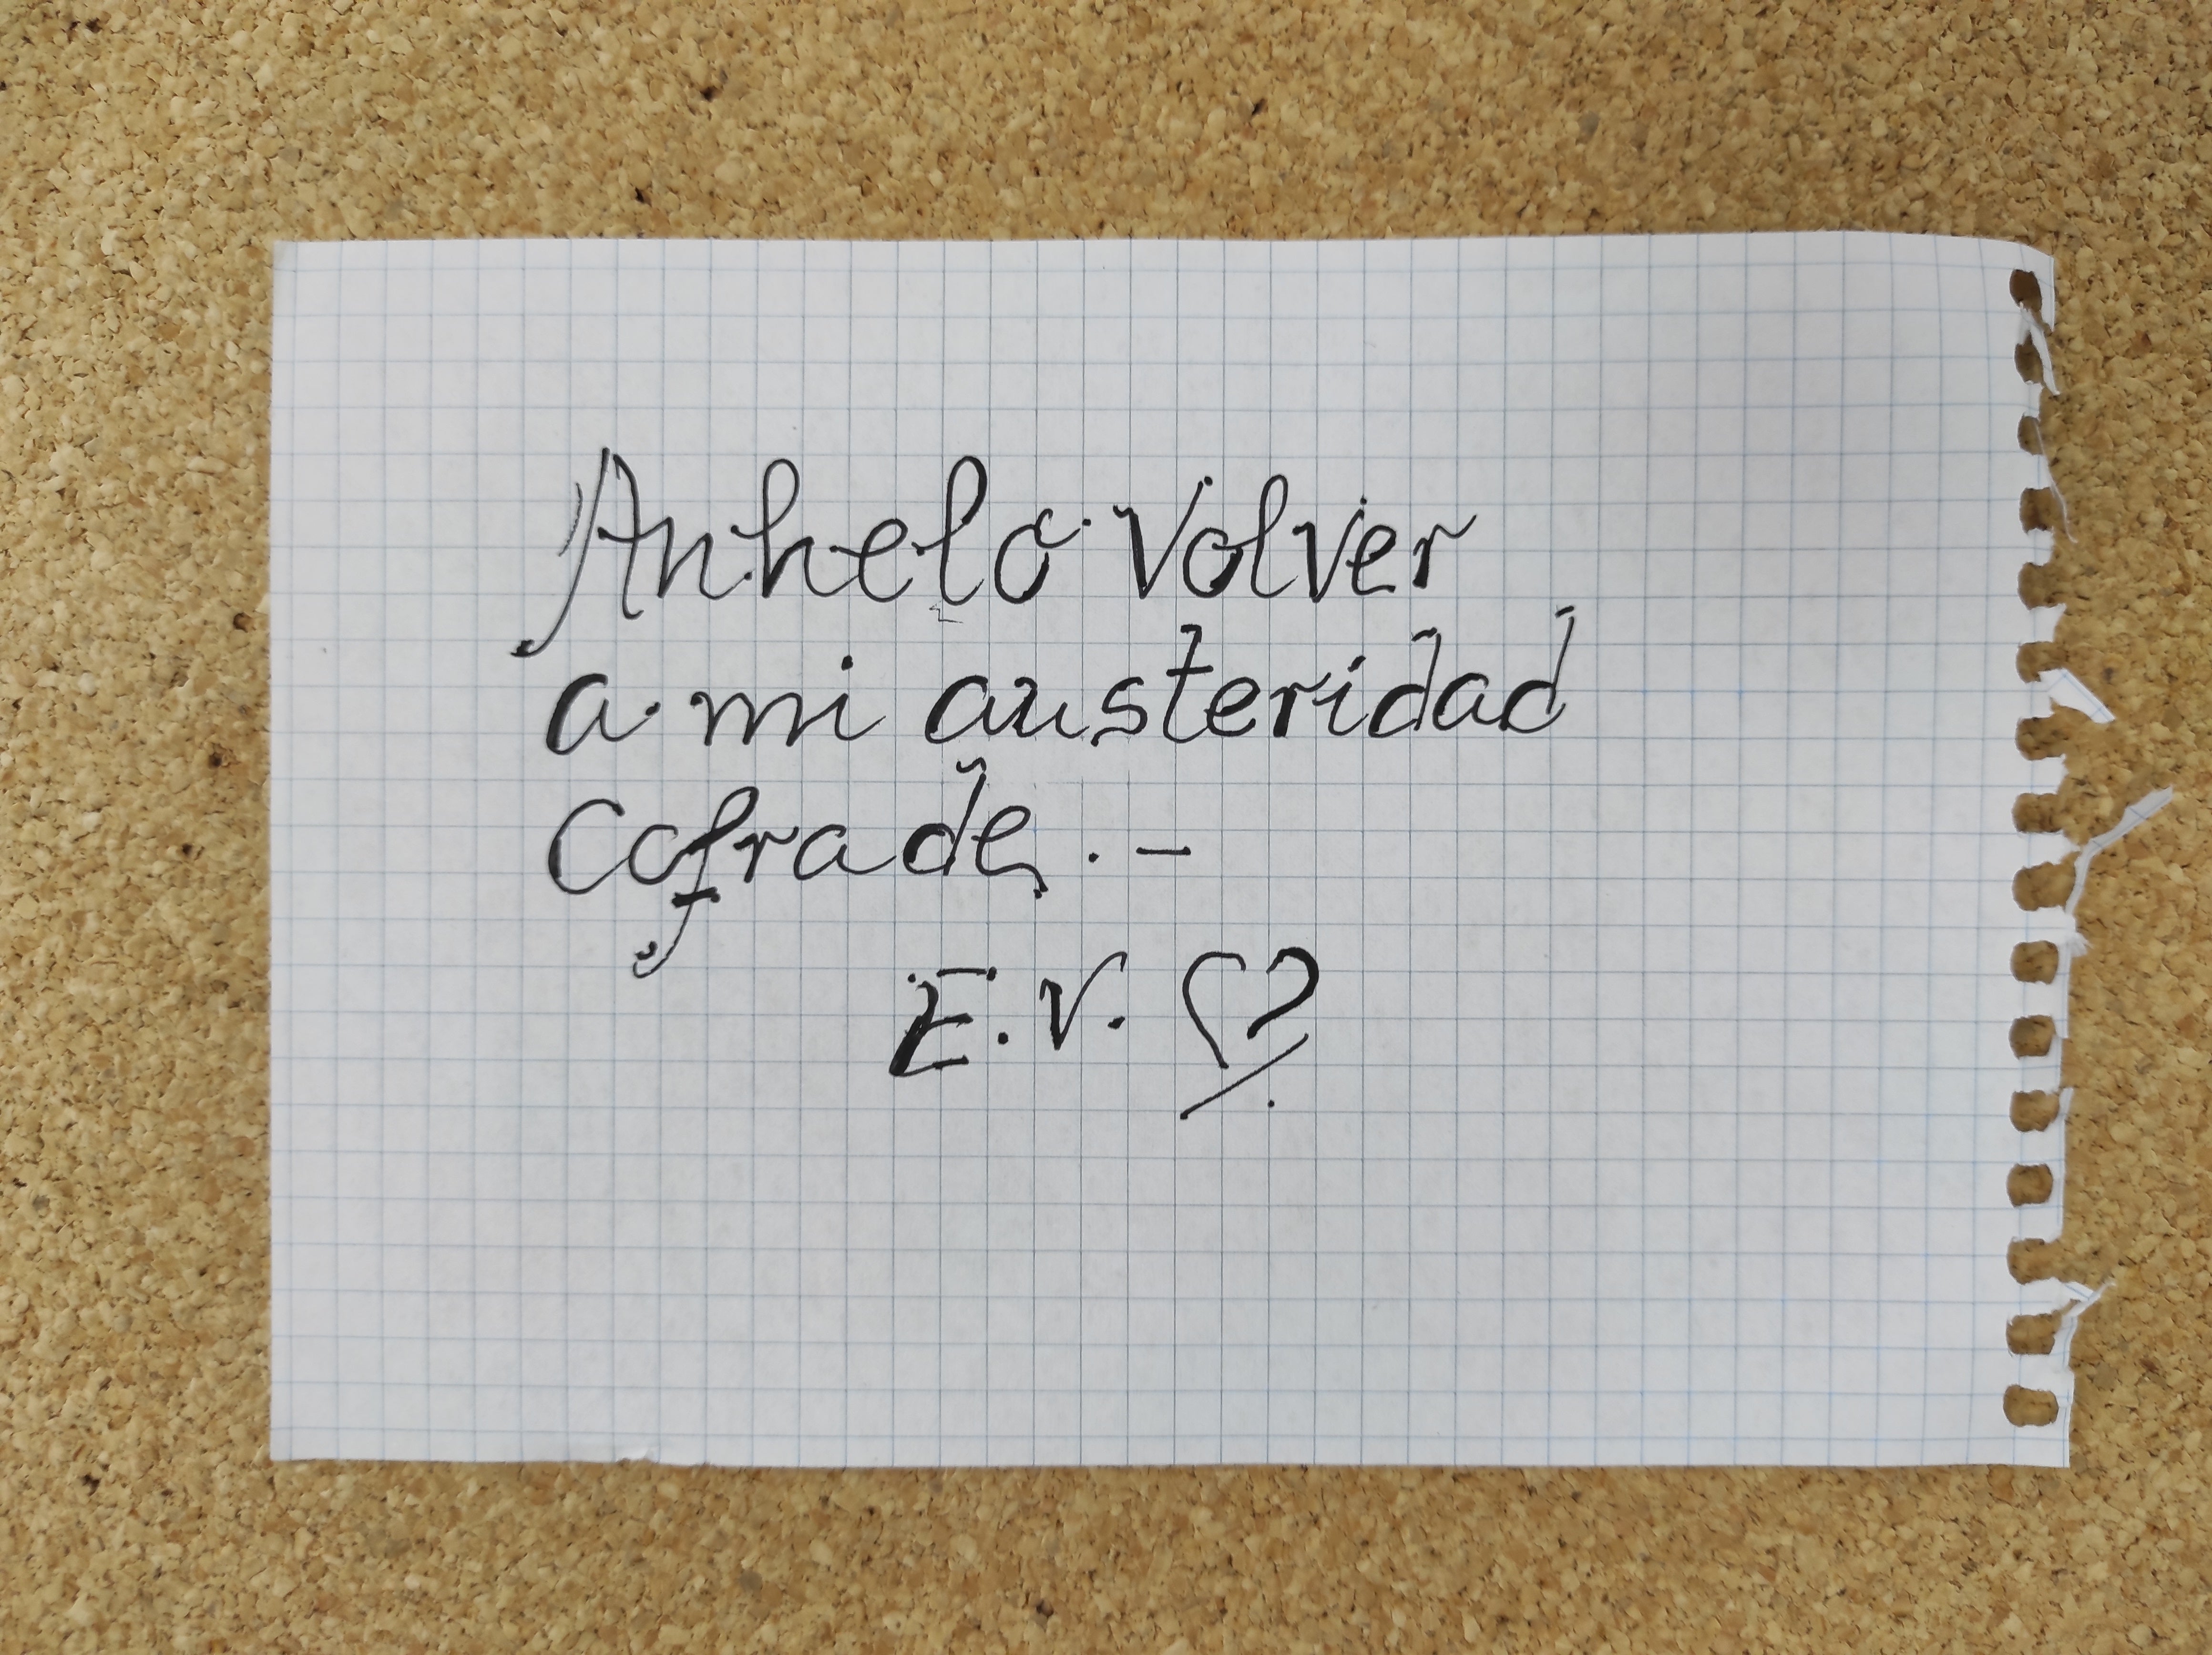 Anhelo volver
a mi austeridad
cofrade.-
E.V. ♡